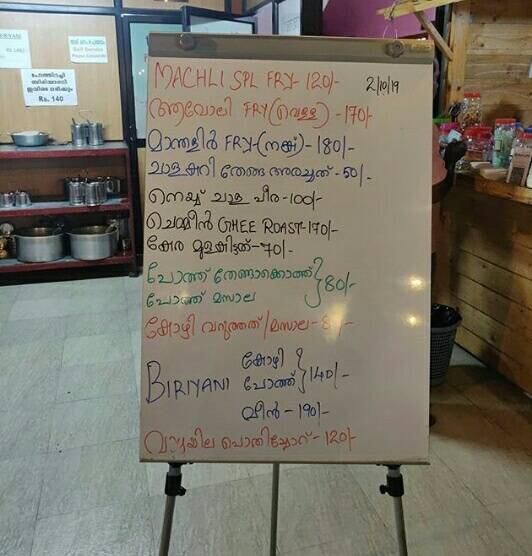 MACHLI SPL FRY - 120/-
2/10/19
ആവോലി FRY (വെള്ള) - 170/-
മാന്തളിർ FRY - (നങ്ക്) - 180/-
ചാളകറി തേങ്ങ അരച്ചത് - 50/-
നെയ്യ് ചാള പീര - 100/-
ചെമ്മീൻ GHEE ROAST - 170/-
കേര മുളകിട്ടത് - 70/-
പോത്ത് തേങ്ങാക്കൊത്ത്
പോത്ത് മസാല } 80/-
കോഴി വറുത്തത്/മസാല -
BIRIYANI കോഴി
പോത്ത് } 140/-
മീൻ - 190/-
വാഴയില പൊതിച്ചോറ് - 120/-
Self Service
Rs. 140